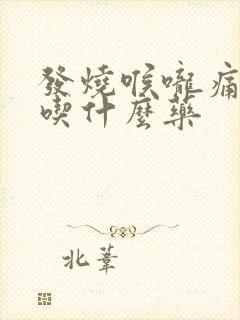 發燒喉嚨痛
喫什麼藥
北葦